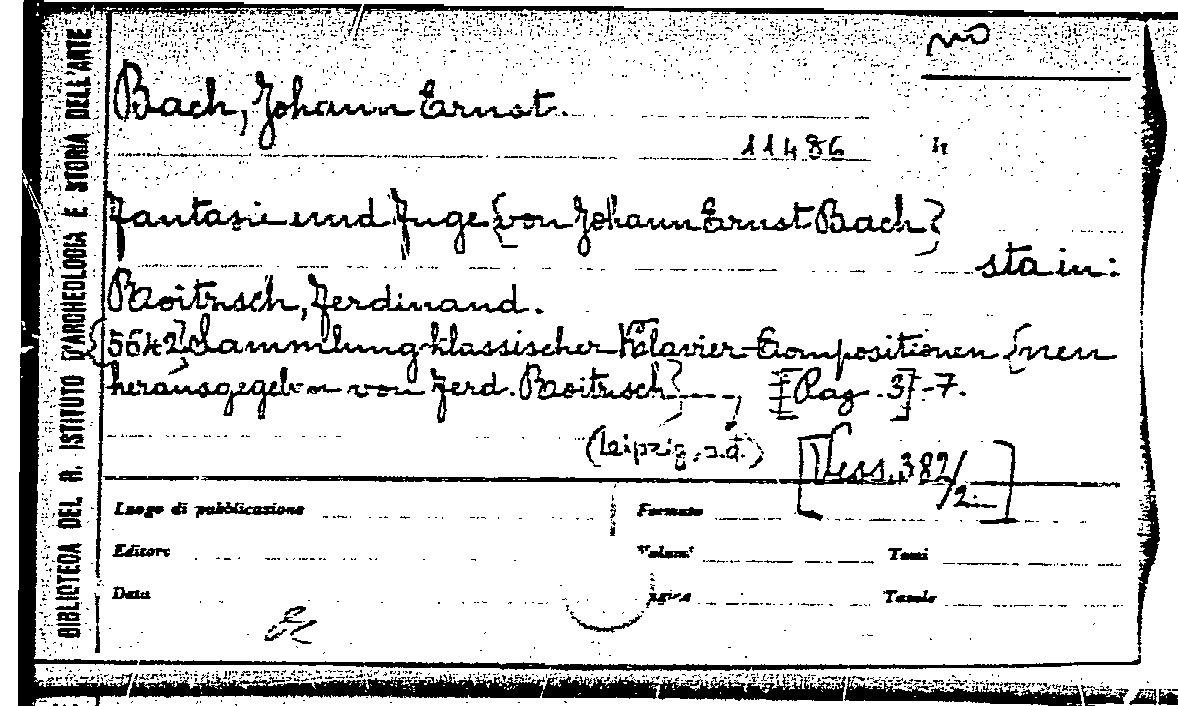 BIBLIOTECA DEL R. ISTITUTO D'ARCHEOLOGIA E STORIA DELL'ARTE
mo
Bach, Johann Ernst.
11486
Fantasie und Fuge {von Johann Ernst Bach}
sta in:
Roitzsch, Ferdinand.
{5642} Sammlung klassischer Klavier-Compositionen {neu
herausgegeben von Ferd. Roitzsch}---, [[Pag. 3]-7.
(Leipzig, s.d.)
[Vess. 382/2]
Luogo di pubblicazione
Formato
Editore
Volumi
Tomi
Data
Pagine
Tavole